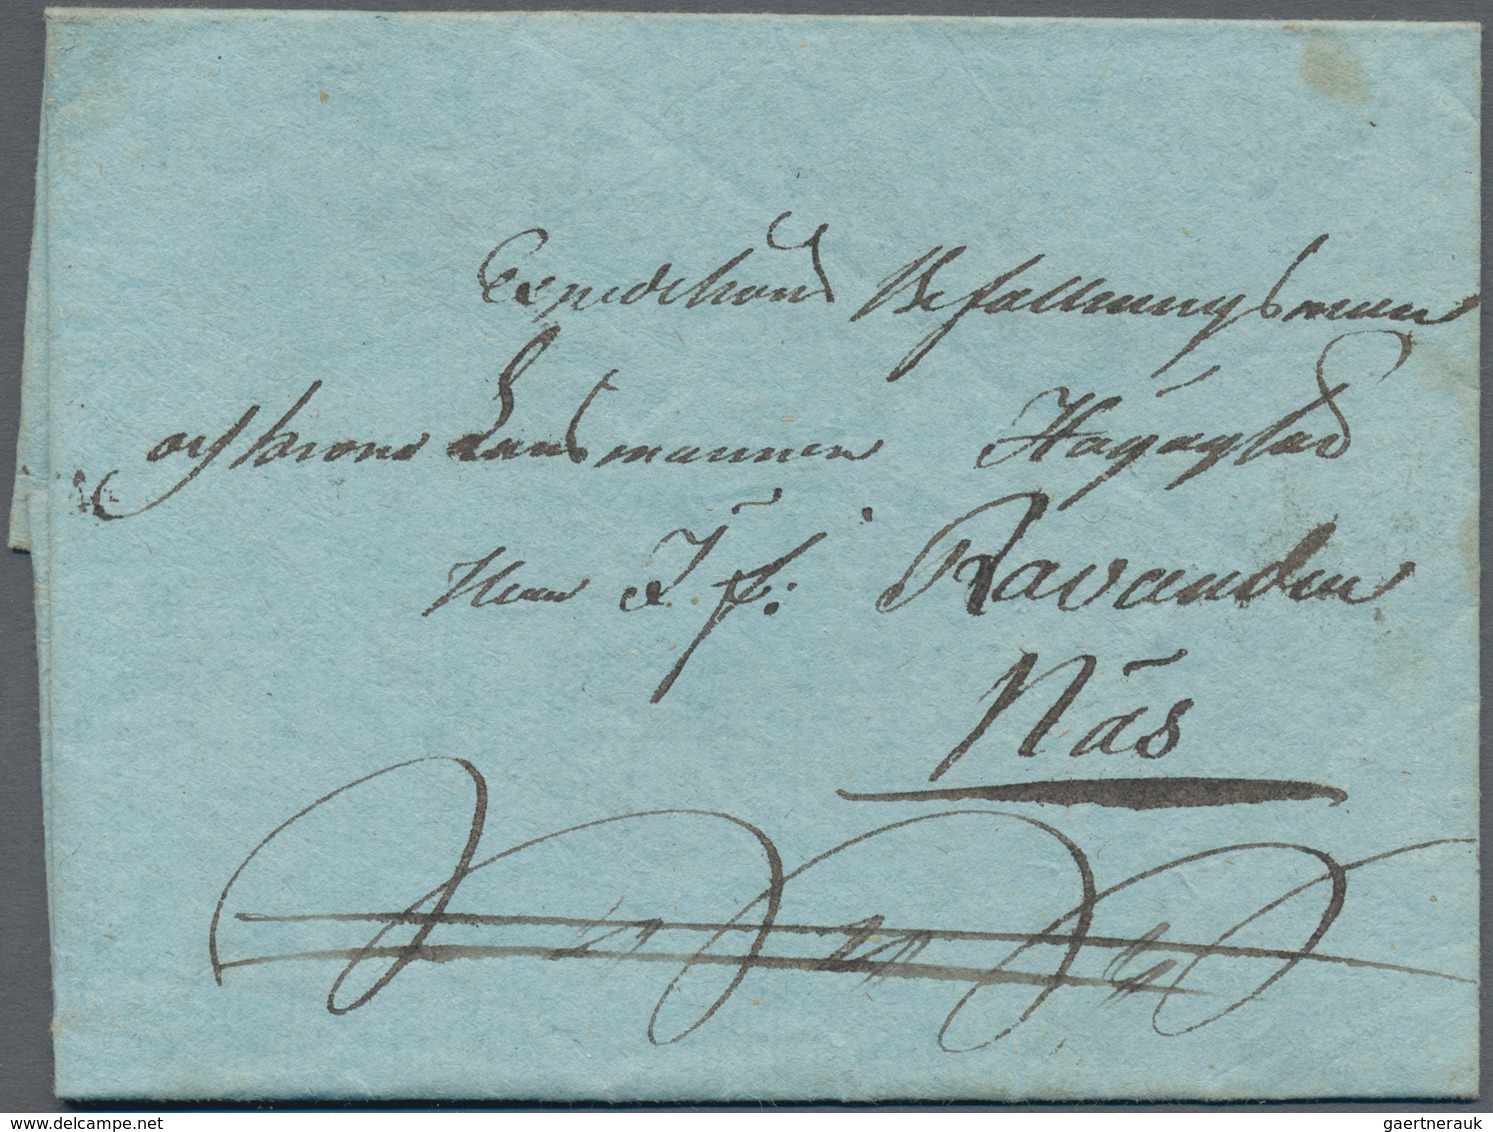 Expeditions Befallningsman
och Krono Länsmannen Högägtad
Herr J. f: Ravander
Näs
delcampe.net
gaertnerauk